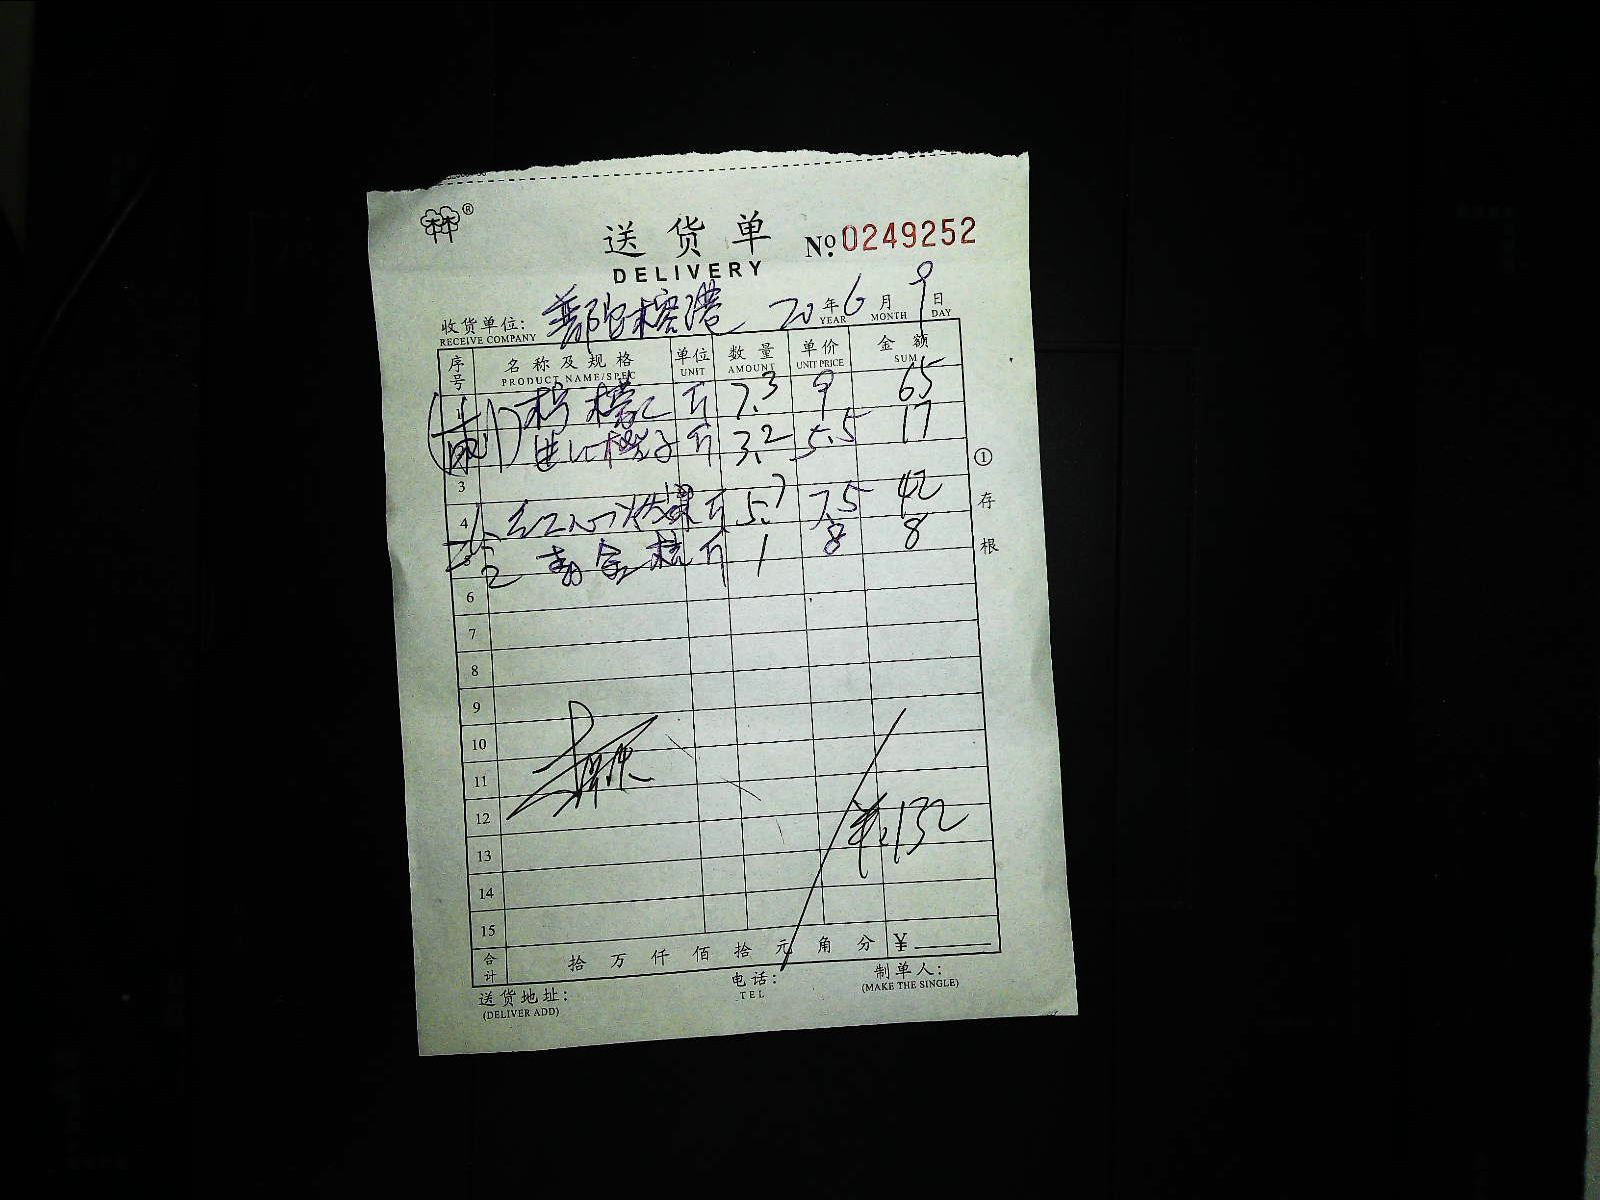 林®
送货单 No.0249252
DELIVERY
收货单位: 普陀榕港 20年6月9日
RECEIVE COMPANY YEAR MONTH DAY
序号 名称及规格 单位 数量 单价 金额
PRODUCT NAME/SPEC UNIT AMOUNT UNIT PRICE SUM
1 柠檬 斤 7.3 9 65
斤 3.2 5.5 17
3
4 斤 5.7 7.5 42
5 青金桔 斤 1 8 8
6
7
8
9
10
11
12 ¥:132
13
14
15
合计 拾 万 仟 佰 拾 元 角 分 ¥
送货地址: 电话: 制单人:
(DELIVER ADD) TEL (MAKE THE SINGLE)
①存根